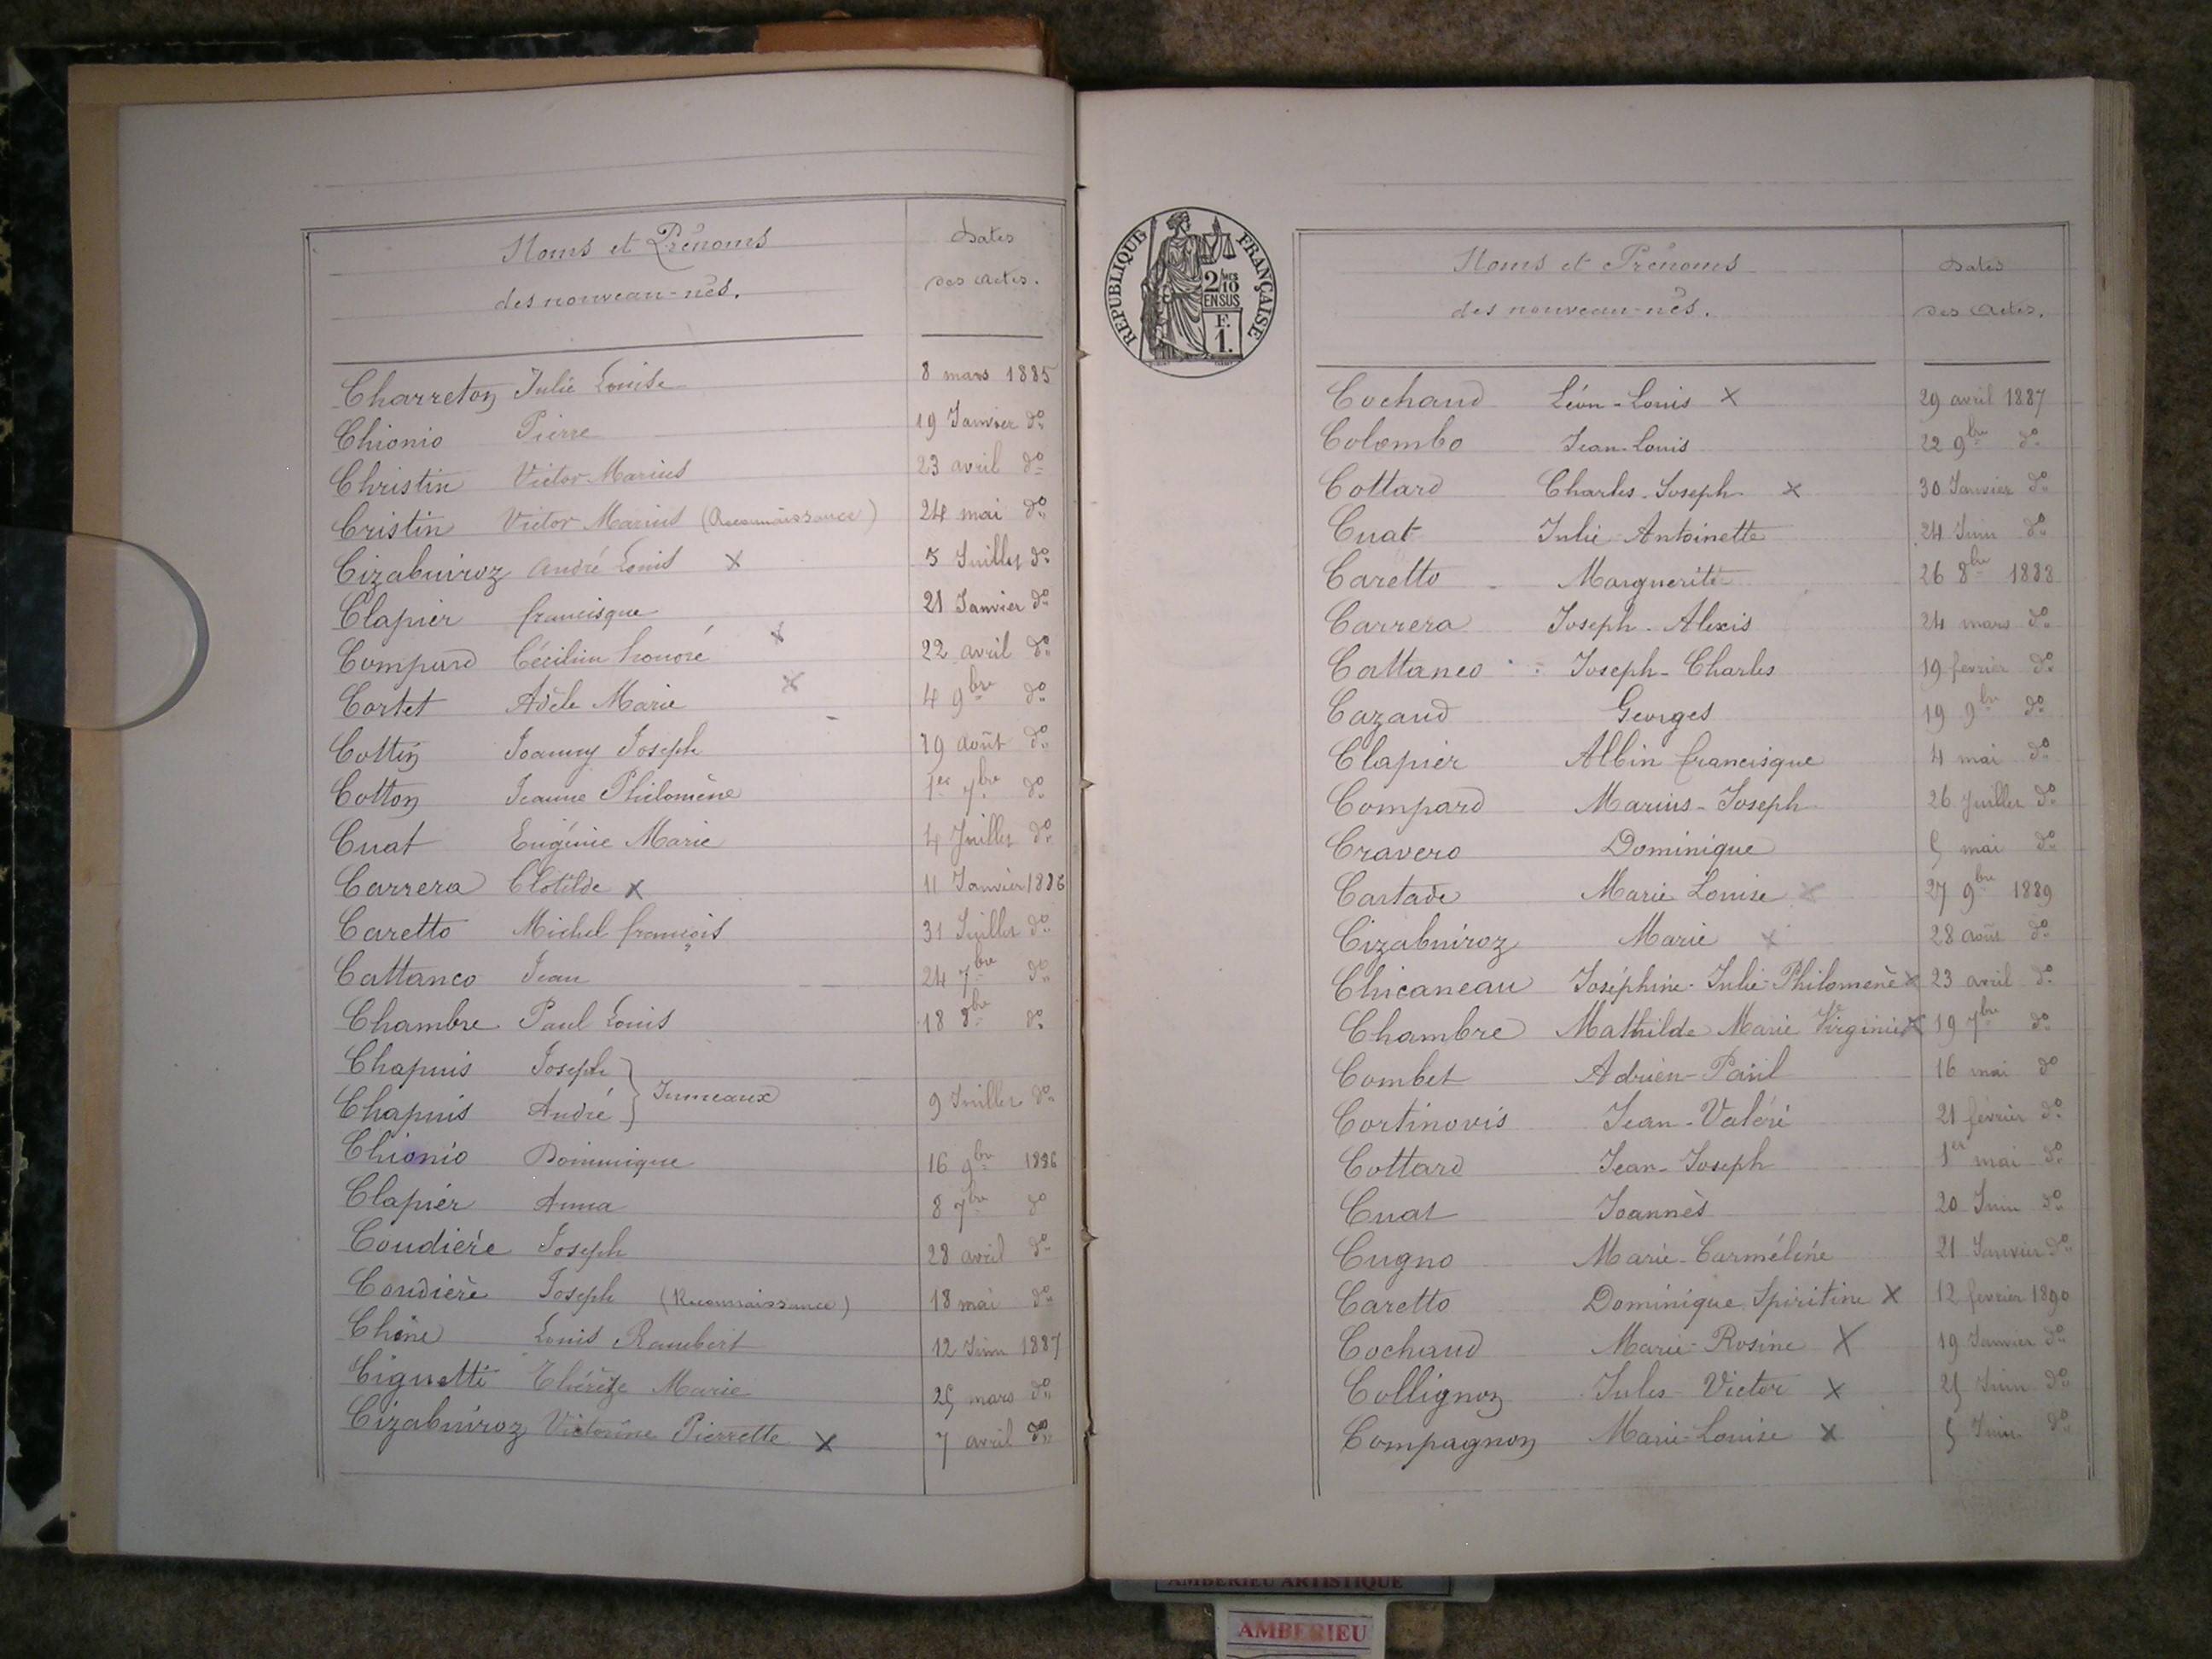 Noms et Prénoms
des nouveau-nés.
Dates
des actes.
Charreton Julie Louise 8 mars 1885
Chionio Pierre 19 Janvier do
Christin Victor Marius 23 avril do
Cristin Victor Marius (Reconnaissance) 24 mai do
Cizabuiroz André Louis x 5 Juillet do
Clapier francisque 21 Janvier do
Compard Cécilien honoré x 22 avril do
Cortet Adèle Marie x 4 9bre do
Cottin Joanny Joseph 19 août do
Cotton Jeanne Philomène 1er 7bre do
Cuat Eugénie Marie 4 Juillet do
Carrera Clotilde x 11 Janvier 1886
Caretto Michel françois 31 Juillet do
Cattaneo Jean 24 7bre do
Chambre Paul Louis 18 8bre do
Chapuis Joseph
Chapuis André } Jumeaux 9 Juillet do
Chionio Dominique 16 9bre 1886
Clapier Anna 8 7bre do
Coudière Joseph 28 avril do
Coudière Joseph (Reconnaissance) 18 mai do
Chêne Louis Rambert 12 Juin 1887
Ciguetti Thérèze Marie 25 mars do
Cizabuiroz Victorine Pierrette x 7 avril do
REPUBLIQUE FRANÇAISE
2/10 MES
EN SUS
F.
1.
Noms et Prénoms
des nouveau-nés.
Dates
des actes.
Cochand Léon-Louis x 29 avril 1887
Colombo Jean-Louis 22 9bre do
Cottard Charles-Joseph x 30 Janvier do
Cuat Julie Antoinette 24 Juin do
Caretto Marguerite 26 8bre 1888
Carrera Joseph-Alexis 24 mars do
Cattaneo Joseph-Charles 19 fevrier do
Cazaud Georges 19 9bre do
Clapier Albin francisque 4 mai do
Compard Marius-Joseph 26 Juillet do
Cravero Dominique 5 mai do
Castade Marie Louise x 27 9bre 1889
Cizabuiroz Marie x 28 août do
Chicaneau Joséphine-Julie-Philomène x 23 avril do
Chambre Mathilde Marie Virginie x 19 7bre do
Combet Adrien-Paul 16 mai do
Cortinovis Jean-Valéri 21 février do
Cottard Jean-Joseph 1er mai do
Cuat Joannès 20 Juin do
Cugno Marie-Carméline 21 Janvier do
Caretto Dominique Spiritine x 12 fevrier 1890
Cochaud Marie-Rosine x 19 Janvier do
Collignon Jules-Victor x 25 Juin do
Compagnon Marie-Louise x 5 Juin do
AMBERIEU ARTISTIQUE
AMBERIEU